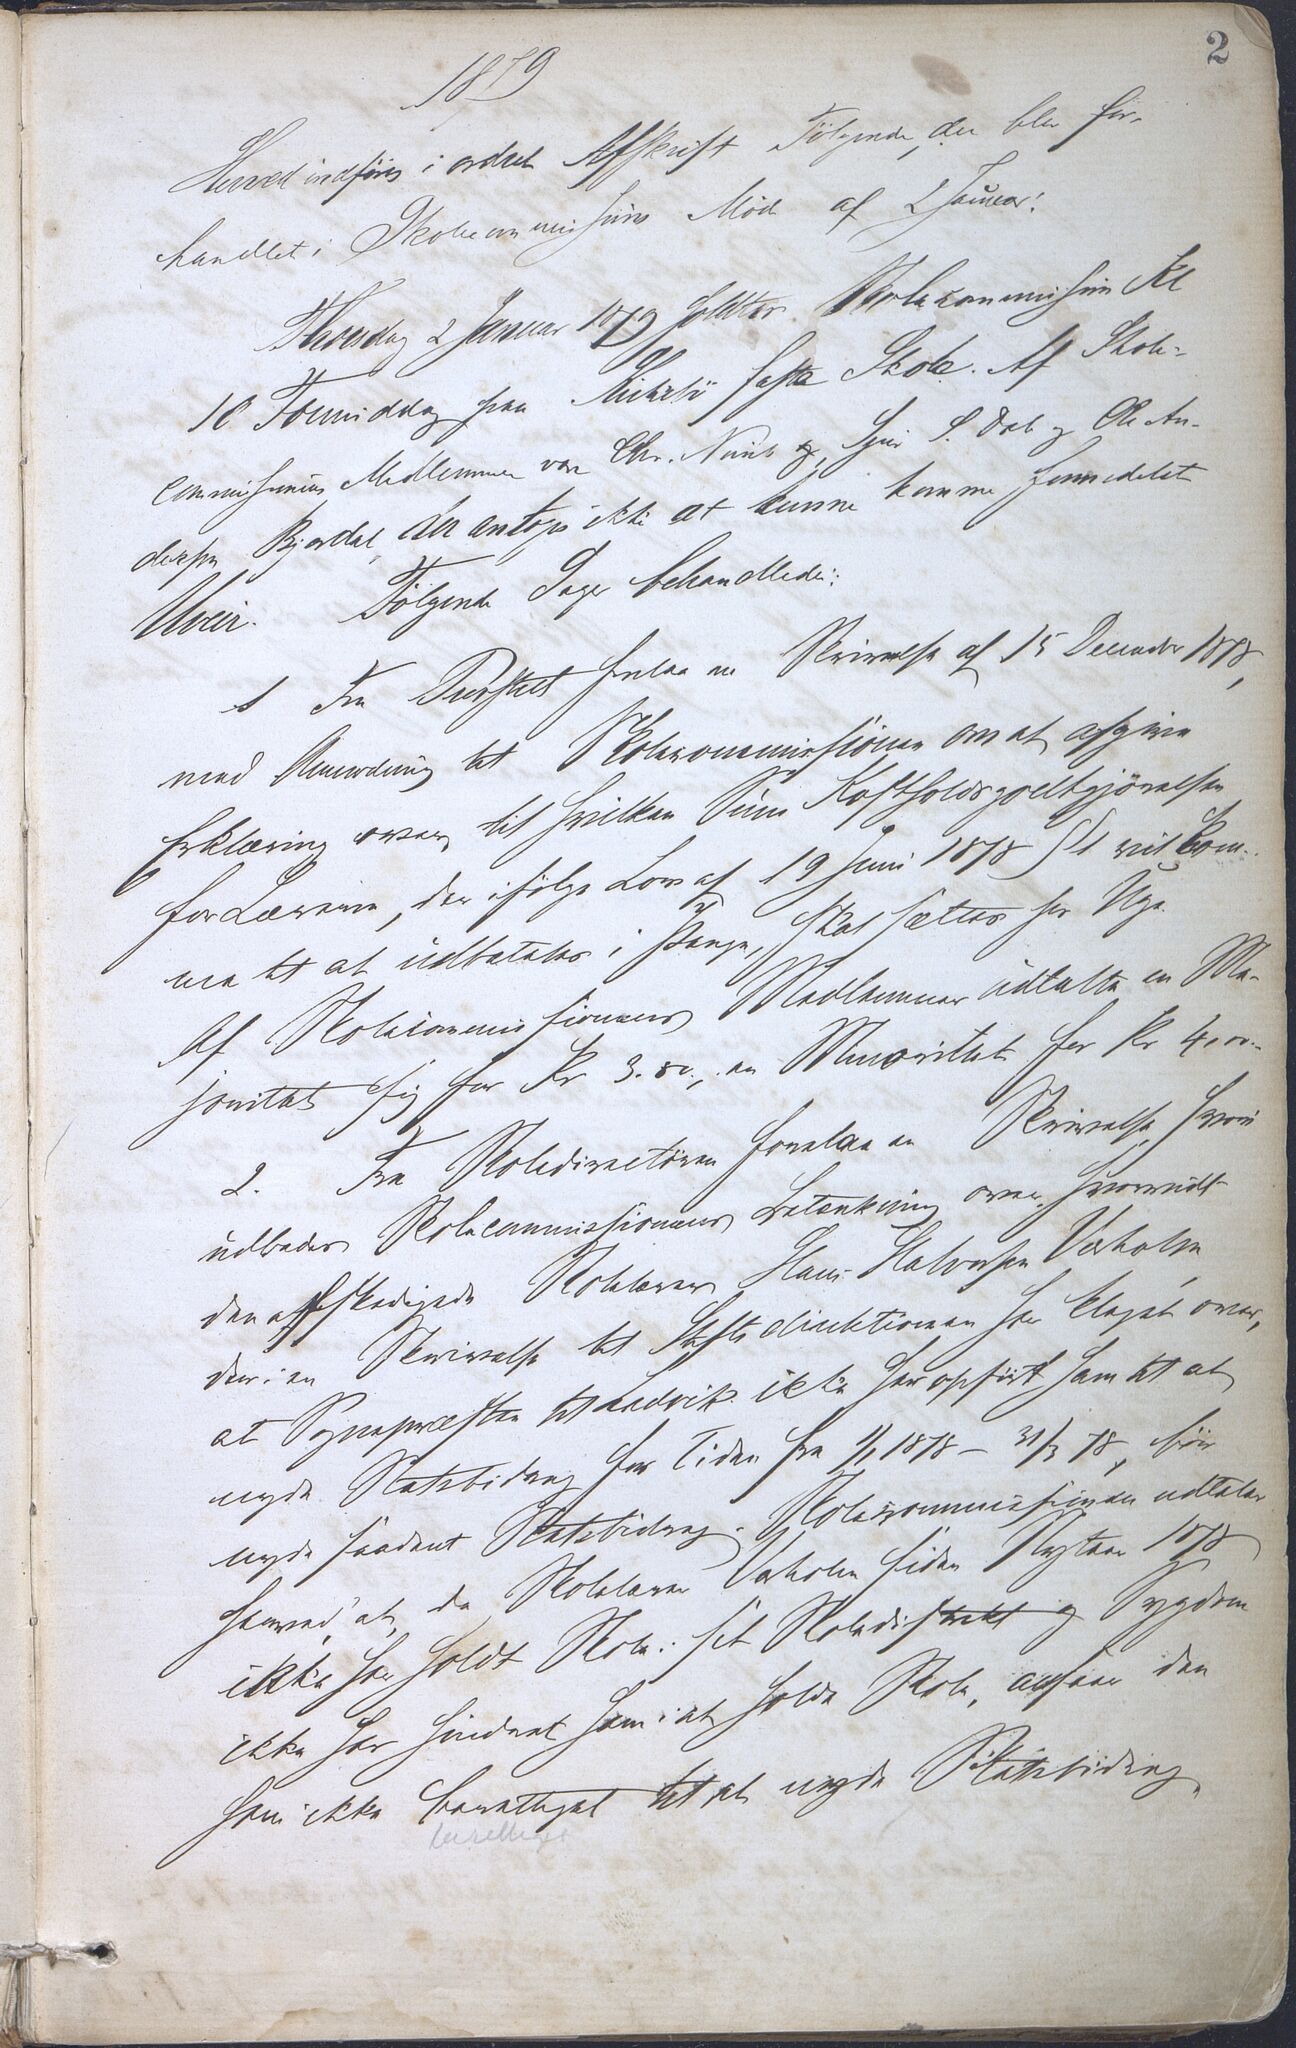 2
1879
Herved indføres i ordret Afskrift Følgende, der blev for-
handlet i Skolecommissions Møde af 2 Januar:
Thorsdag 2 Januar 1879 holdtes Skolecommission Kl
10 Formiddag paa faste Skole. Af Skole-
commissionens Medlemmer vare Chr. og Ole An-
dersen Bjordal, der antoges ikke at kunne komme formedelst
Uveir. Følgende Sager behandledes:
1 Fra Provstiet forelaa en Skrivelse af 15 December 1878,
med Anmodning til Skolecommissionen om at afgive
Erklæring over, til hvilken Sum Kostholdsgodtgjørelsen
for Lærerne, der ifølge Lov af 19 Juni 1878 § 1 vil kom-
me til at udbetales i Penge, skal sættes per Uge.
Af Skolecommissionens Medlemmer udtalte en Ma-
joritet sig for Kr 3.80, en Minoritet for Kr 4,00.-
2. Fra Skoledirectøren forelaa en Skrivelse, hvori
udbedes Skolecommissionens Betænkning over, hvorvidt
den afskedigede Skolelærer Hans Halvorsen Vaholm,
der i en Skrivelse til Stiftsdirektionen har klaget over,
at Sognepræsten til Landvik ikke har opført ham til at
nyde Statsbidrag for Tiden fra 1/1 1878 - 31/3 78, bør
nyde saadant Statsbidrag. Skolecommissionen udtaler
herved, at, da Skolelærer Vaholm siden Nytaar 1878
ikke har holdt Skole i sit Skoledistrikt og Sygdom
ikke har hindret ham i at holde Skole, ansaar den
ham ikke berettiget til at nyde Statsbidrag.
berettiget